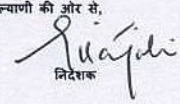 ल्याणी की ओर से,
निदेशक